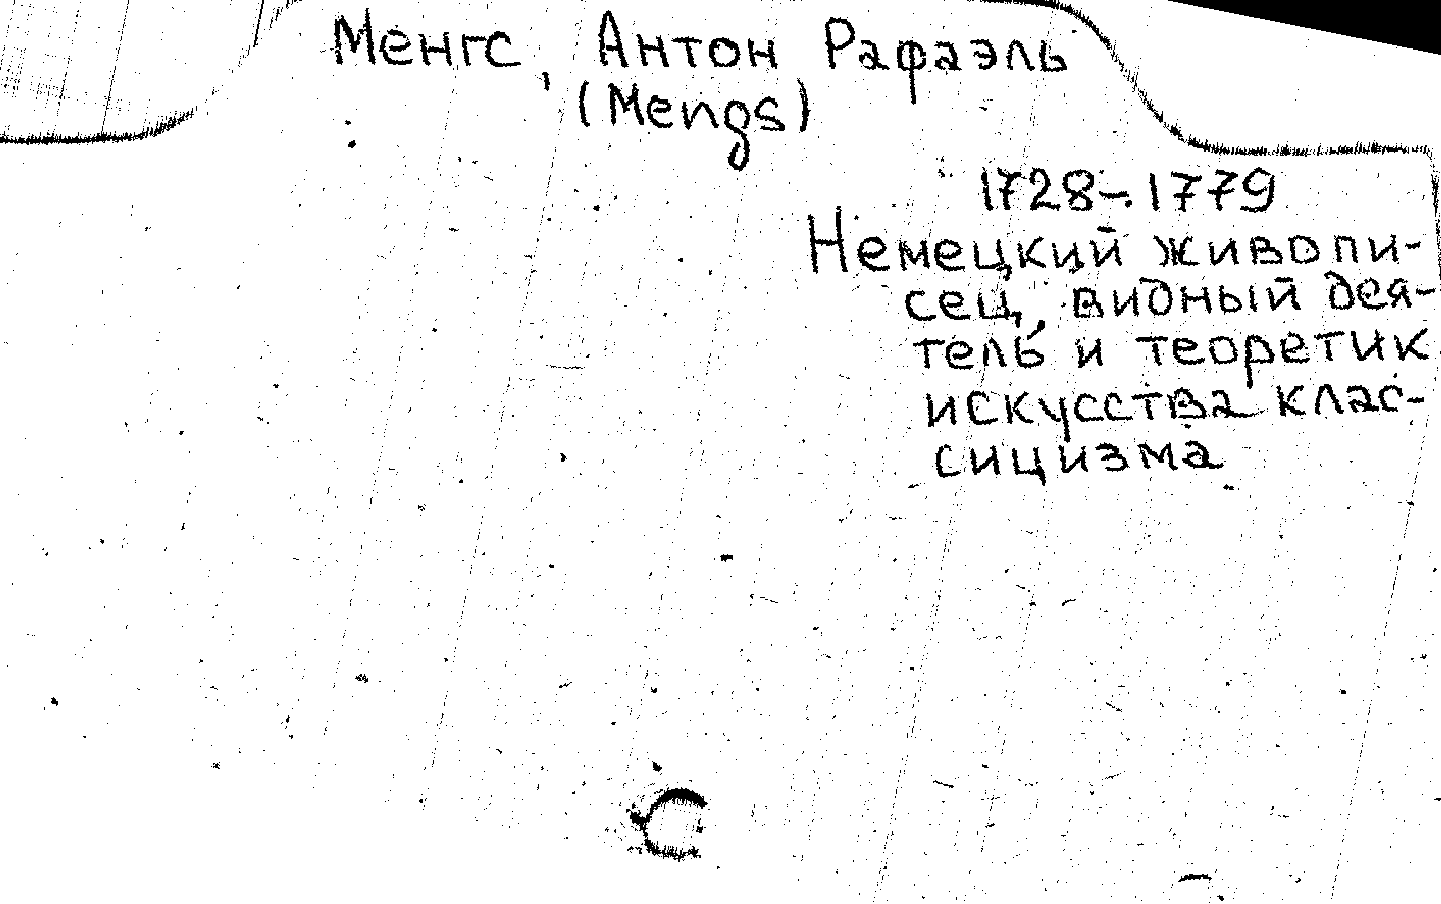 Менгс, Антон Рафаэль
(Mengs)
1728-1779
Немецкий живопи-
сец, видный дея-
тель и теоретик
искусства клас-
сицизма